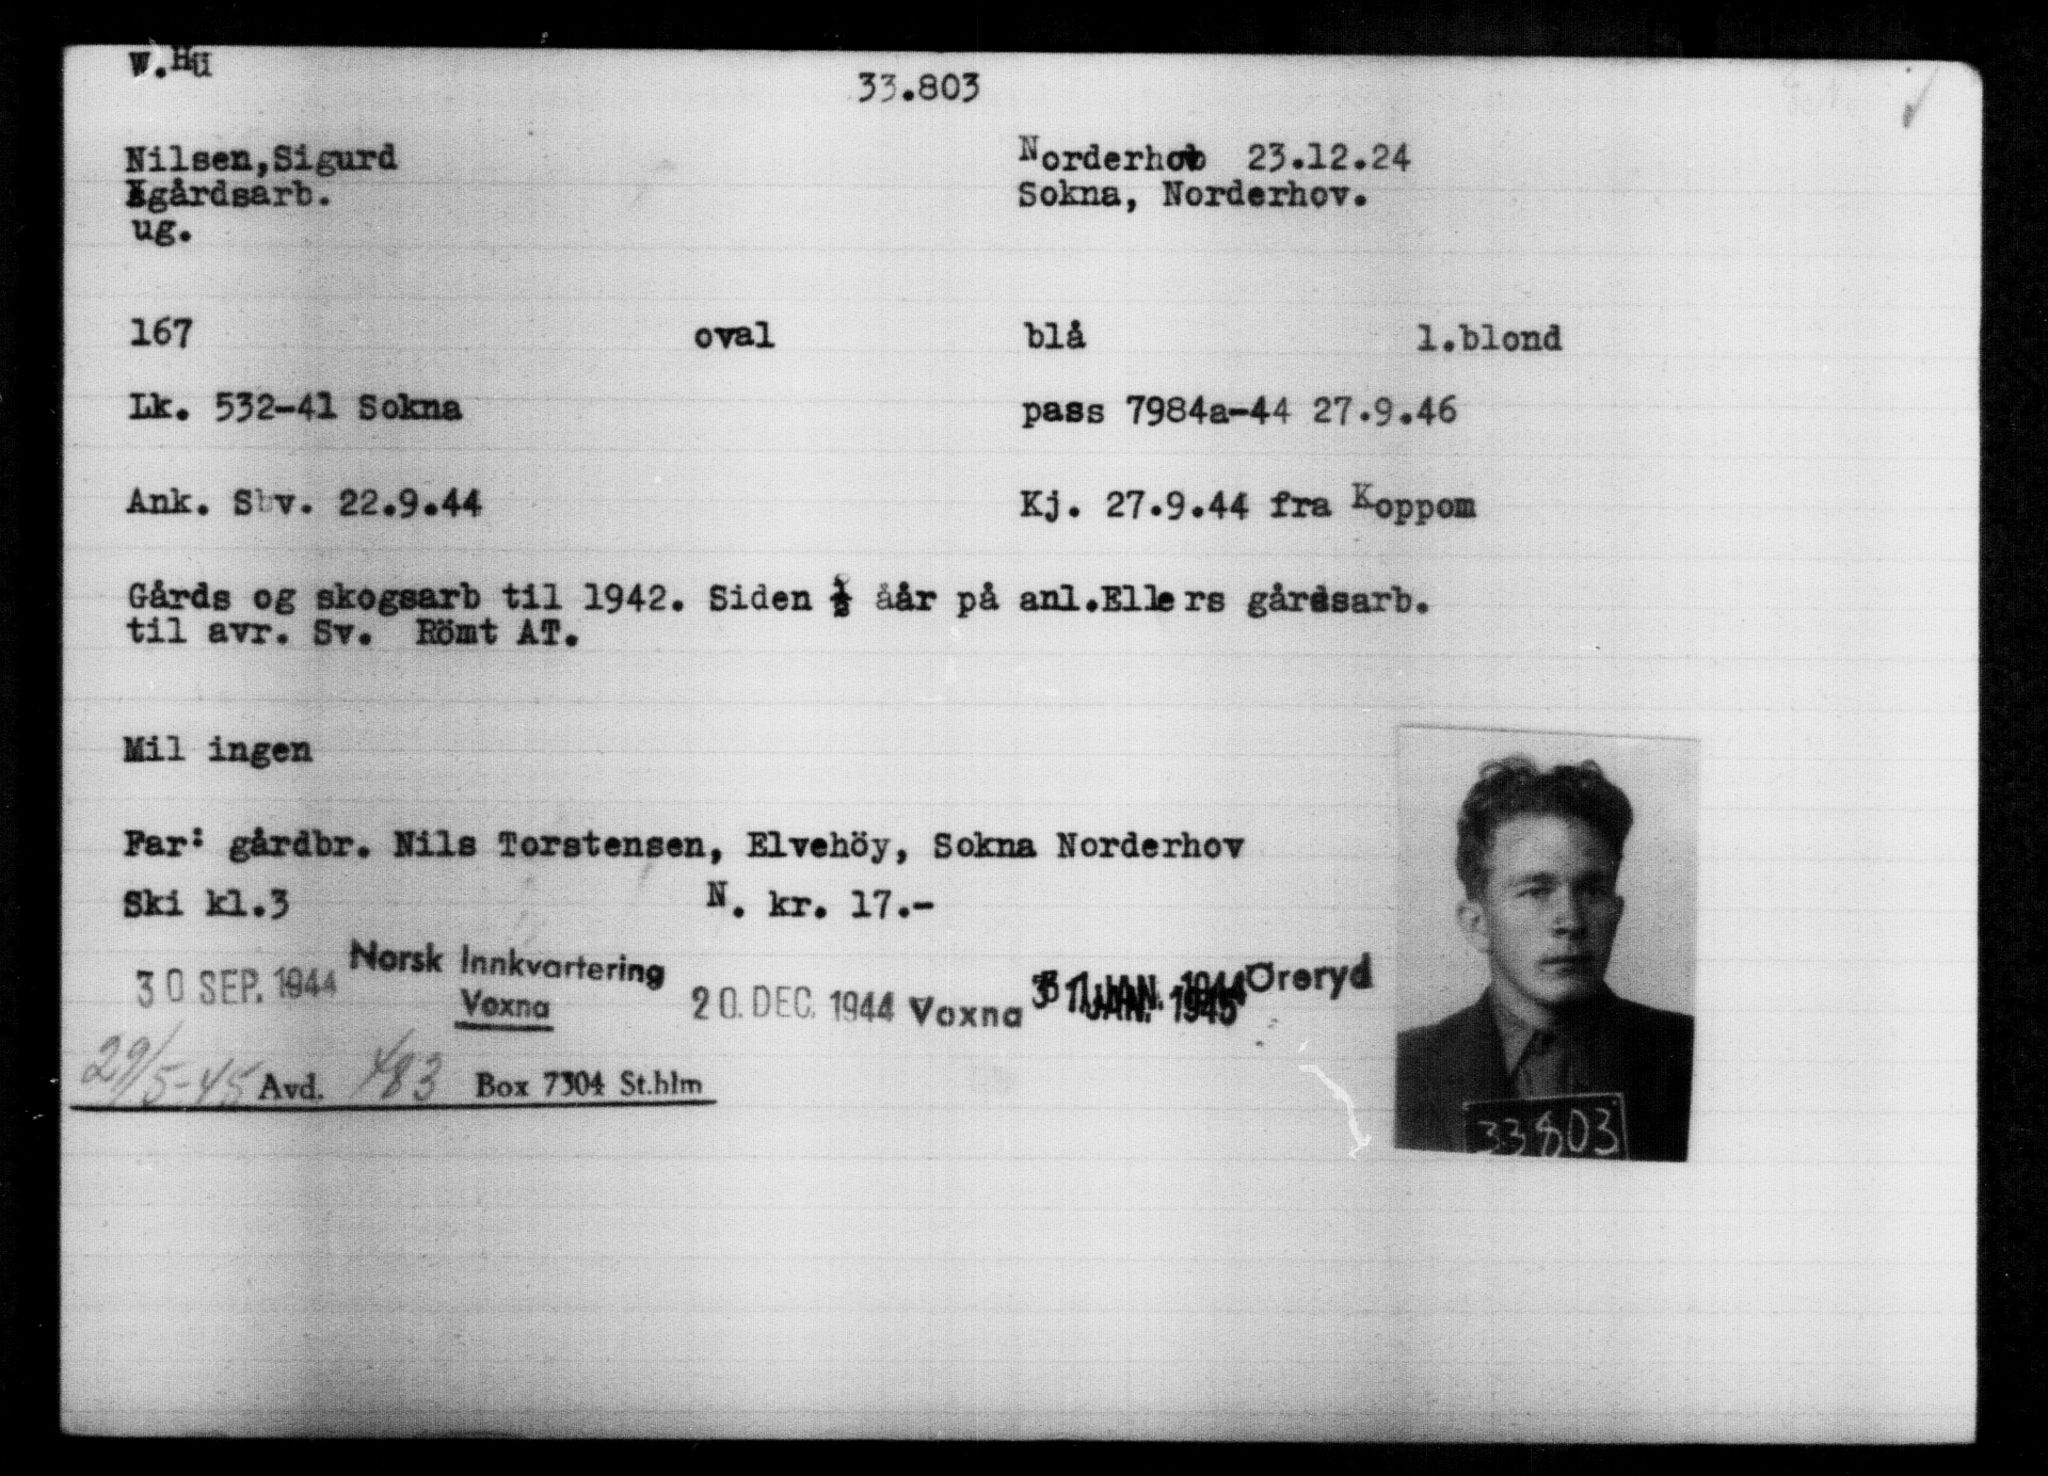 W.Hü
33.803
Nilsen,Sigurd Norderhov 23.12.24
gårdsarb. Sokna, Norderhov.
ug.
167 oval blå l.blond
Lk. 532-41 Sokna pass 7984a-44 27.9.46
Ank. Sv. 22.9.44 Kj. 27.9.44 fra Koppom
Gårds og skogsarb til 1942. Siden ½ åår på anl.Ellers gårdsarb.
til avr. Sv. Römt AT.
Mil ingen
Far: gårdbr. Nils Torstensen, Elvehöy, Sokna Norderhov
Ski kl.3 N. kr. 17.-
30 SEP. 1944 Norsk Innkvartering Voxna 20. DEC. 1944 Voxna 31. JAN. 1945 Øreryd
29/5-45 Avd. 483 Box 7304 St.hlm
33803